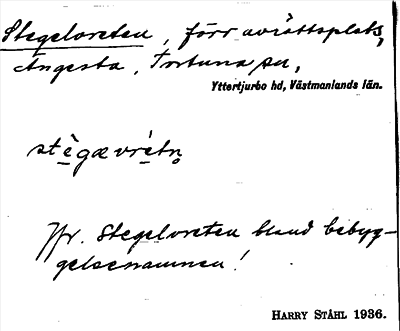 Stegelvreten, förr avrättsplats,
Ängesta, Tortuna sn,
Yttertjurbo hd, Västmanlands län.
stègævrètn̥
Jfr. Stegelvreten bland bebyg-
gelsenamnen!
HARRY STÅHL 1936.